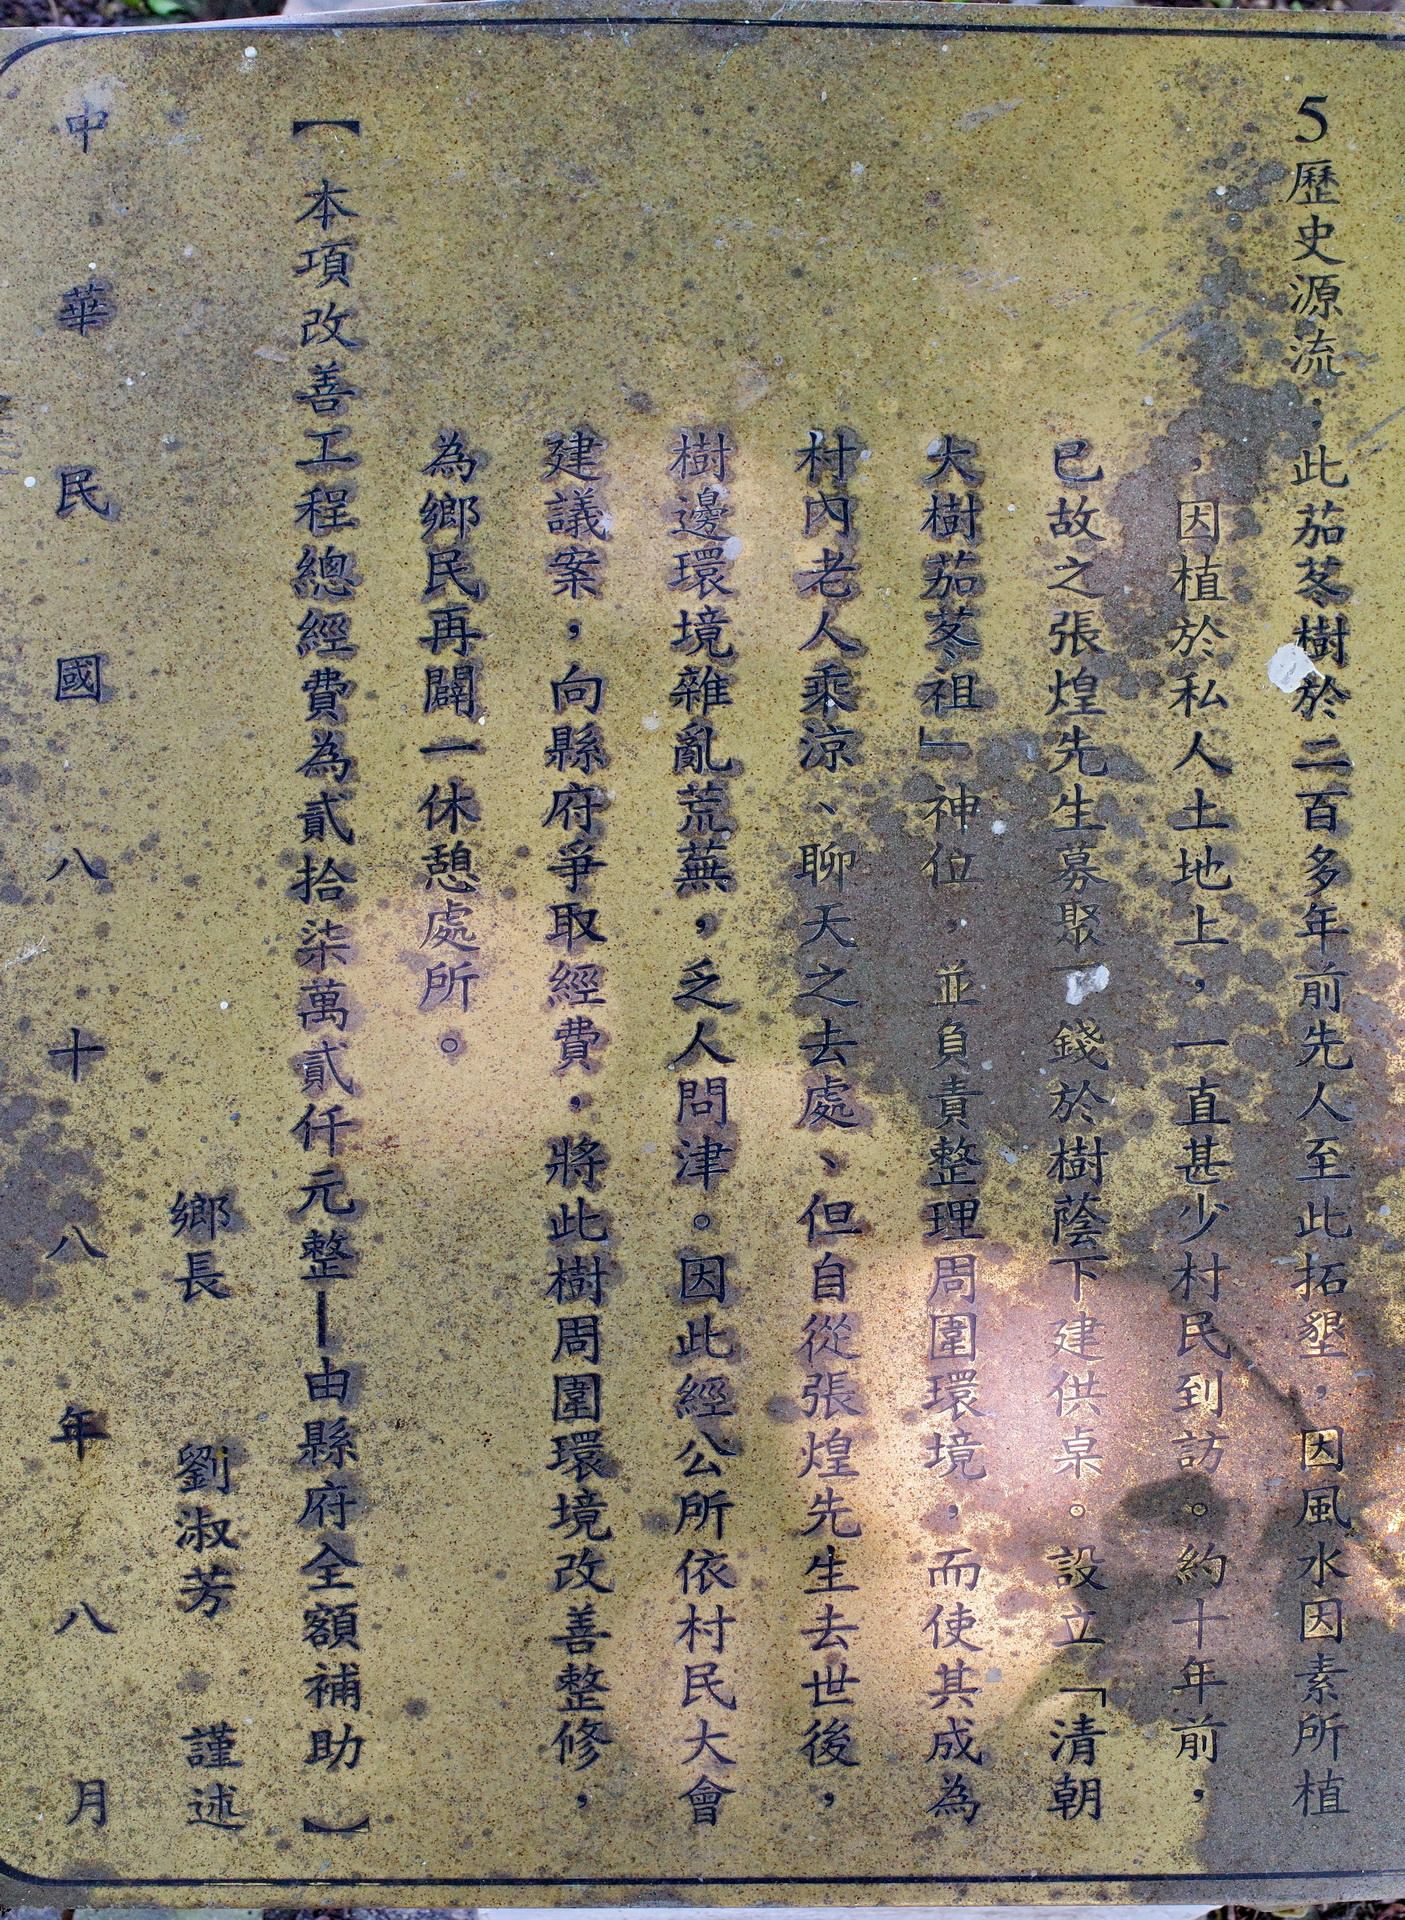 5歷史源流：此茄苳樹於二百多年前先人至此拓墾，因風水因素所植
，因植於私人土地上，一直甚少村民到訪。約十年前，
已故之張煌先生募聚一錢於樹蔭下建供桌。設立「清朝
大樹茄苳祖」神位，並負責整理周圍環境，而使其成為
村內老人乘涼、聊天之去處、但自從張煌先生去世後，
樹邊環境雜亂荒蕪，乏人問津。因此經公所依村民大會
建議案，向縣府爭取經費，將此樹周圍環境改善整修，
為鄉民再闢一休憩處所。
【本項改善工程總經費為貳拾柒萬貳仟元整—由縣府全額補助】
鄉長 劉淑芳 謹述
中華民國八十八年八月